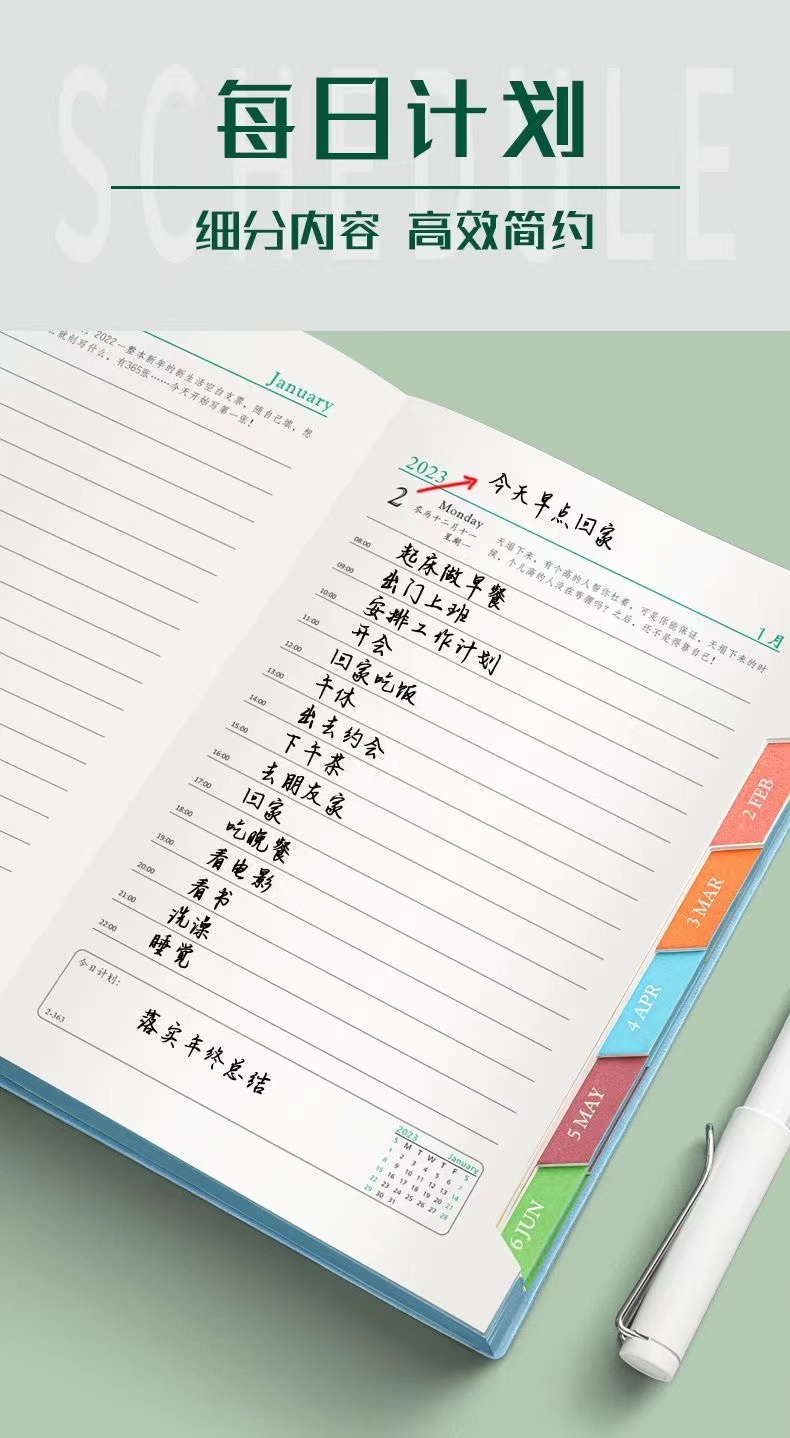 SCHEDULE
每日计划
细分内容 高效简约
January
2022一整本新年的新生活空白支票，随自己填，想
就刨写什么，有365张……今天开始写第一张！
2023
今天早点回家
2
Monday
农历十二月十一
星期一
天塌下来，有个高的人帮你扛着，可是你能保证，天塌下来的时
候，个儿高的人没在弯腰吗？之后，还不是得靠自己！
1月
08:00 起床做早餐
09:00 出门上班
10:00 安排工作计划
11:00 开会
12:00 回家吃饭
13:00 午休
14:00 出去约会
15:00 下午茶
16:00 去朋友家
17:00 回家
18:00 吃晚餐
19:00 看电影
20:00 看书
21:00 洗澡
22:00 睡觉
今日计划：
落实年终总结
2-363
2023 January
S M T W T F S
1 2 3 4 5 6 7
8 9 10 11 12 13 14
15 16 17 18 19 20 21
22 23 24 25 26 27 28
29 30 31
2 FEB
3 MAR
4 APR
5 MAY
6 JUN